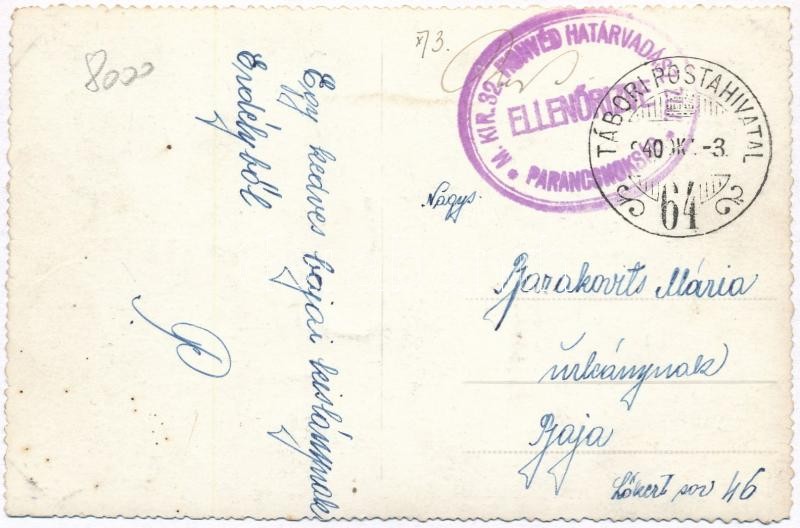 8000
73.
M. KIR. 32. HONVÉD HATÁRVADÁSZ
ELLENŐRIZVE
PARANCSNOKSÁG
TÁBORI POSTAHIVATAL
940 OKT. -3.
64
Egy kedves bajai kislánynak
Erdélyből.
P
Nagys.
Barakovits Mária
úrleánynak
Baja
Lőkert sor 46